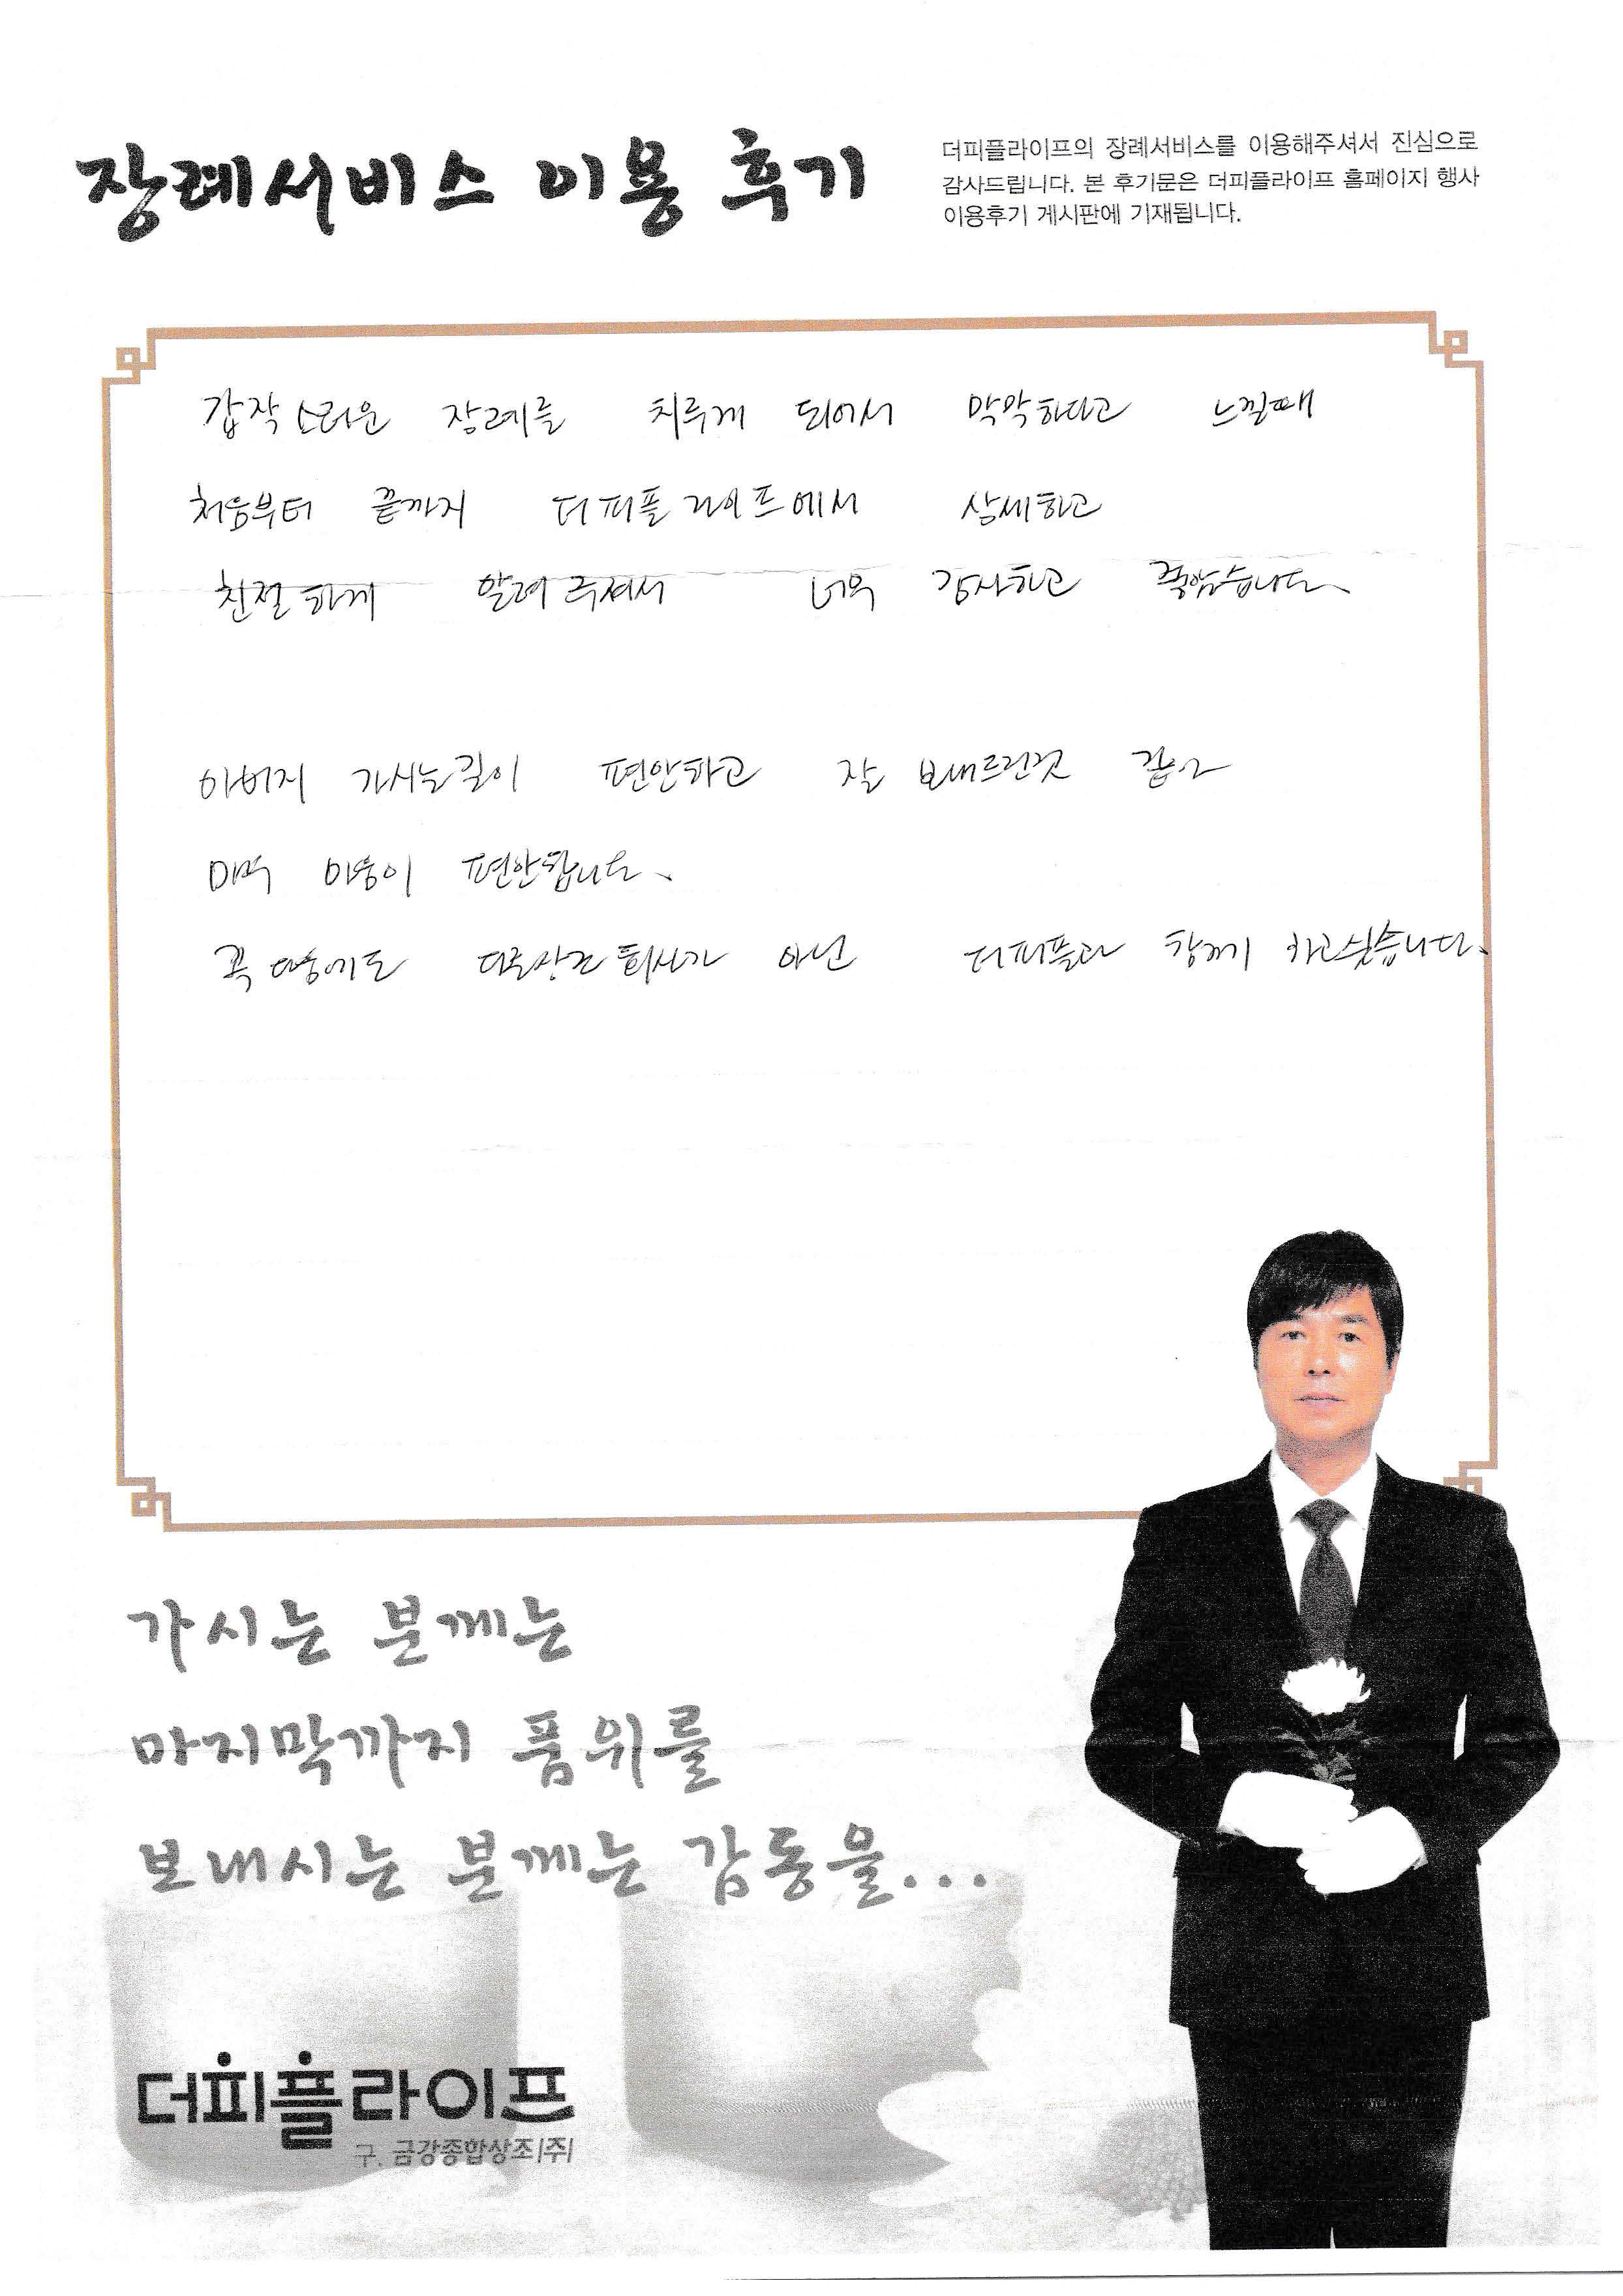 장례서비스 이용 후기
더피플라이프의 장례서비스를 이용해주셔서 진심으로
감사드립니다. 본 후기문은 더피플라이프 홈페이지 행사
이용후기 게시판에 기재됩니다.
갑작스러운 장례를 치루게 되어서 막막하다고 느낄때
처음부터 끝까지 더피플라이프에서 상세하고
친절하게 알려주셔서 너무 감사하고 좋았습니다.
아버지 가시는길이 편안하고 잘 보내드린것 같아
마음이 편안합니다.
꼭 다음에도 다른상조회사가 아닌 더피플과 함께 하고싶습니다.
가시는 분께는
마지막까지 품위를
보내시는 분께는 감동을...
더피플라이프
구. 금강종합상조(주)